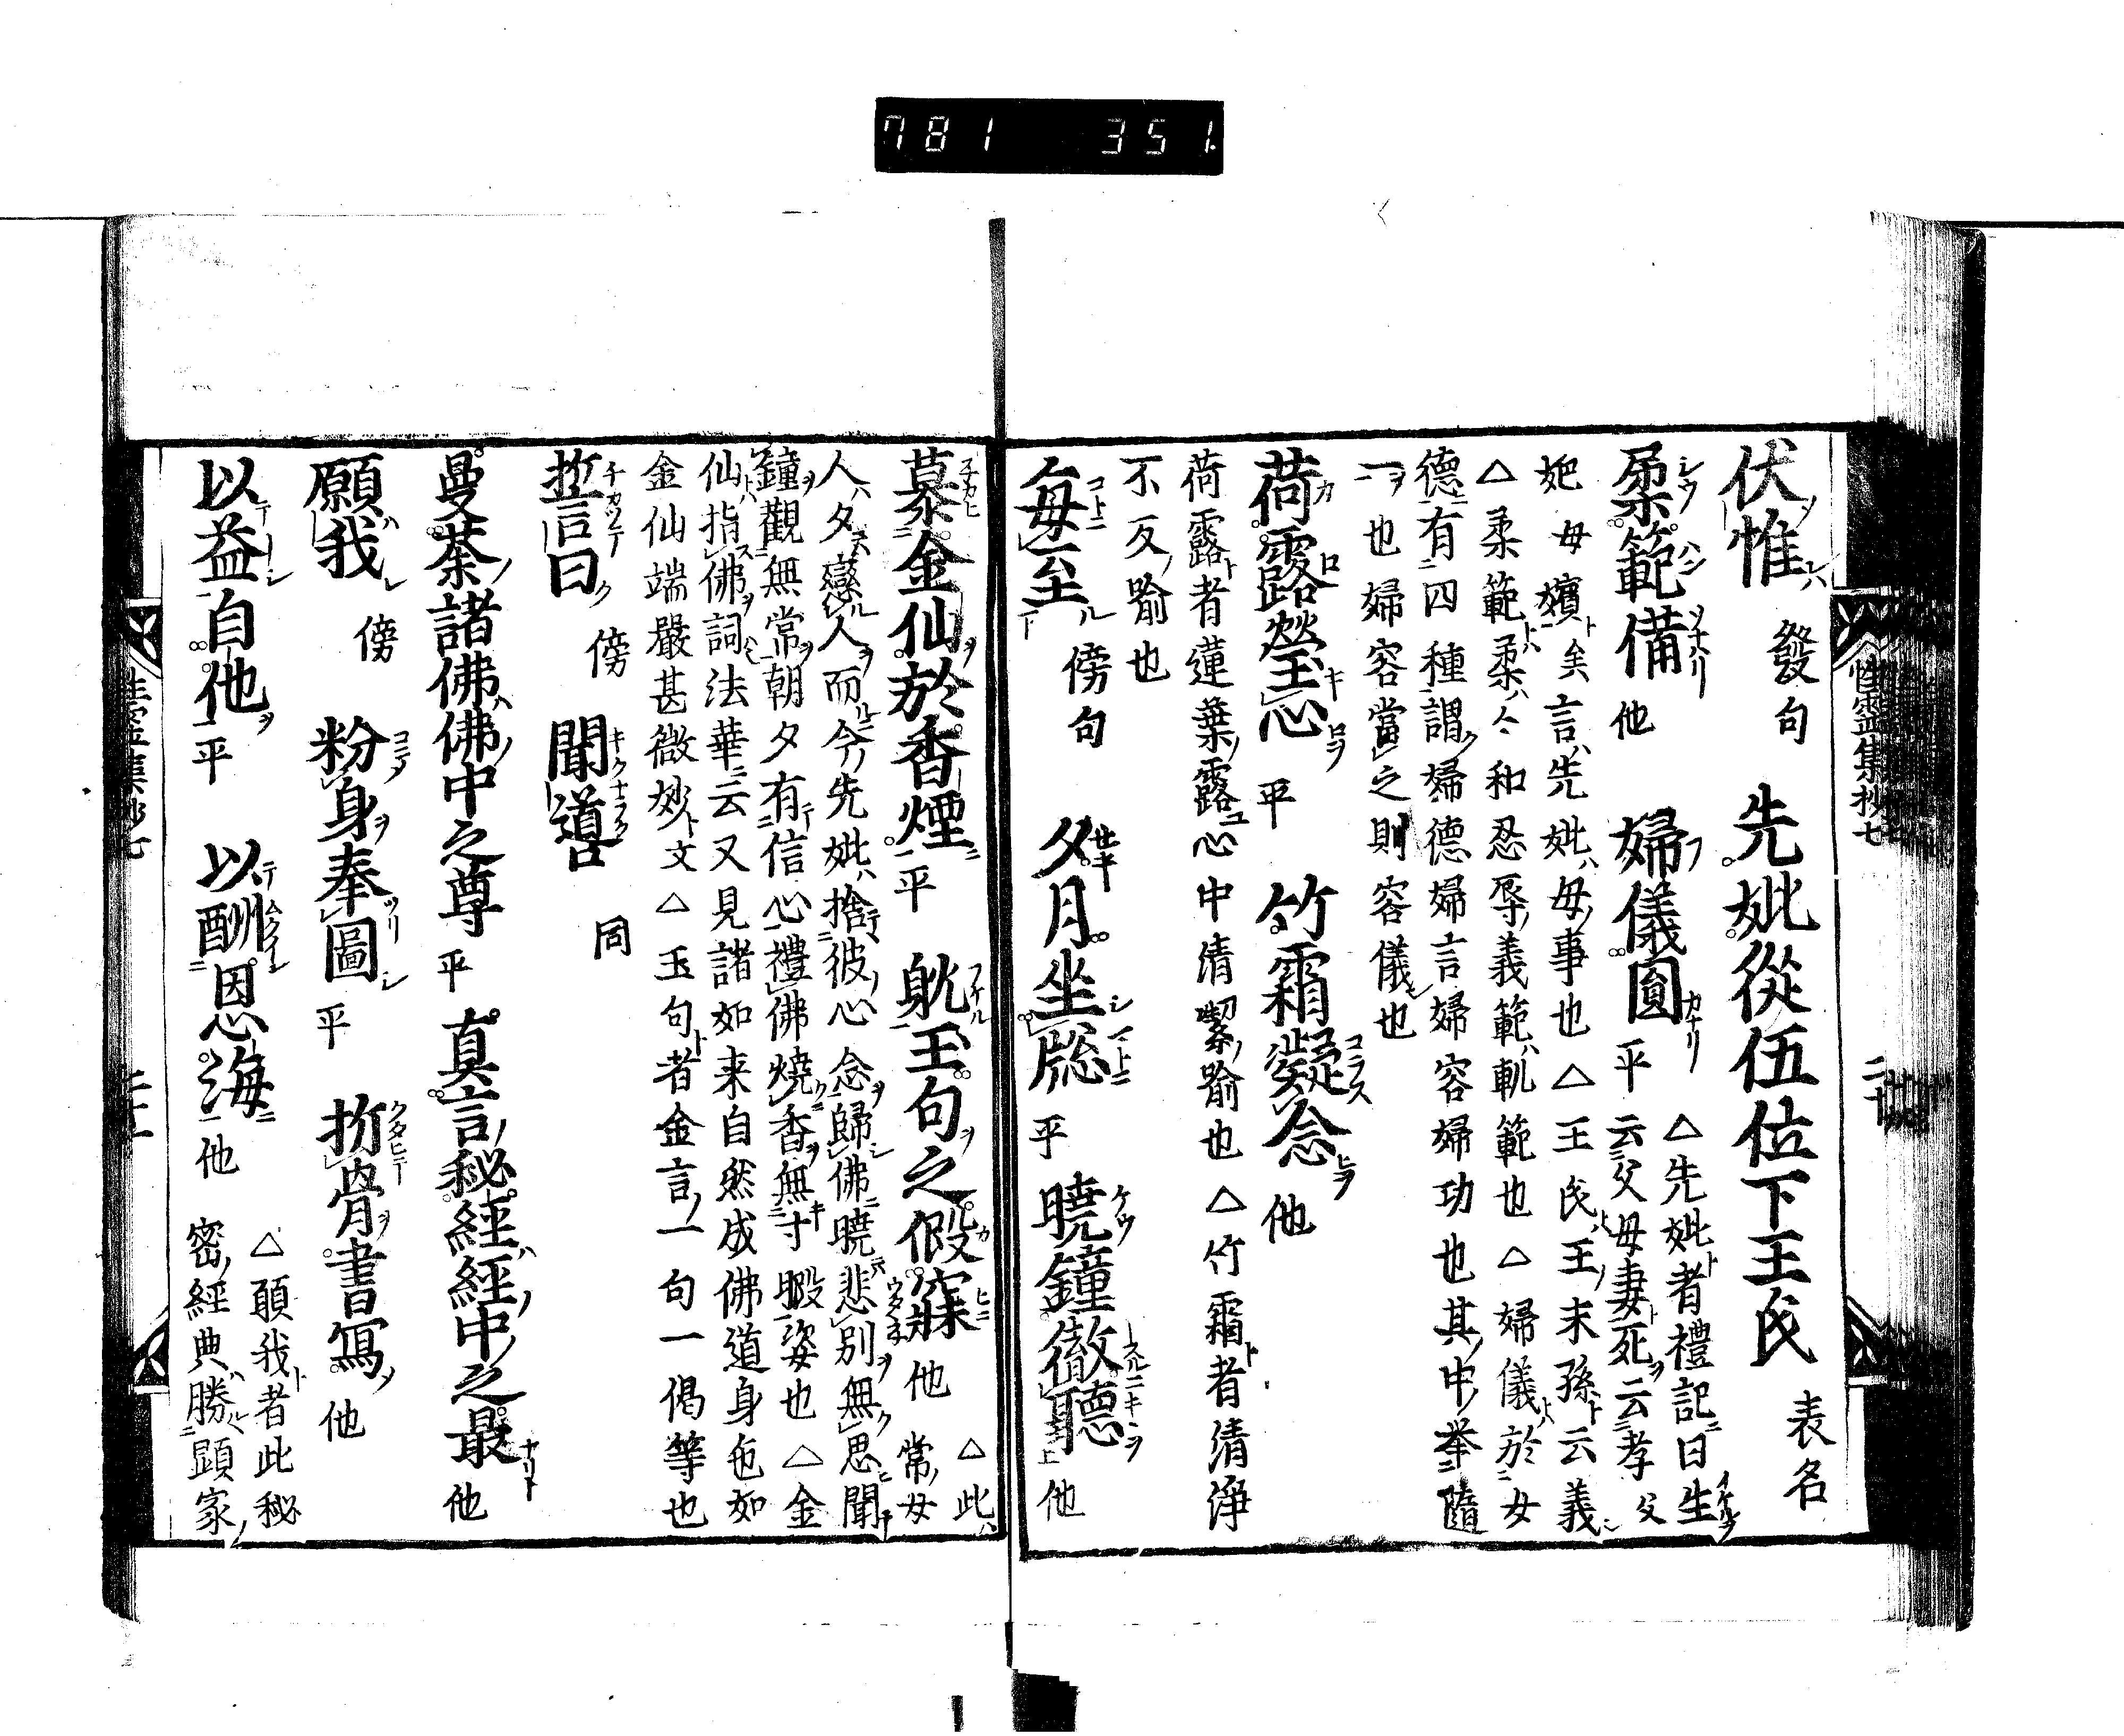 781 351
性霊集抄七
伏惟 發句 先妣從伍位下王氏 表名
柔範備 他 婦儀圓 平 △先妣者禮記曰生
云父母妻死云孝父
妣母嬪矣言先妣母事也△王氏王末孫云義
△柔範柔々和忍辱義範軌範也△婦儀於女
德有四種謂婦德婦言婦容婦功也其中举隨
一也婦容當之則容儀也
荷露瑩心 平 竹霜凝念 他
荷露者蓮葉露心中清潔喻也△竹霜者清淨
不反喻也
毎至 傍句 夕月坐牕 平 曉鐘徹聽 他
慕金仙於香煙 平 躭玉句之假寐 他 △此
常女
人夕戀人而今先妣捨彼心念歸佛曉悲別無思聞
鐘觀無常朝夕有信心禮佛燒香無寸暇姿也△金
仙指佛詞法華云又見諸如来自然成佛道身色如
金仙端嚴甚微妙文△玉句者金言一句一偈等也
誓曰 傍 聞導 同
曼荼諸佛佛中之尊 平 真言秘經經中之最 他
願我 傍 粉身奉圖 平 折骨書寫 他
以益自他 平 以酬恩海 他 △願我者此秘
密經典勝顕家